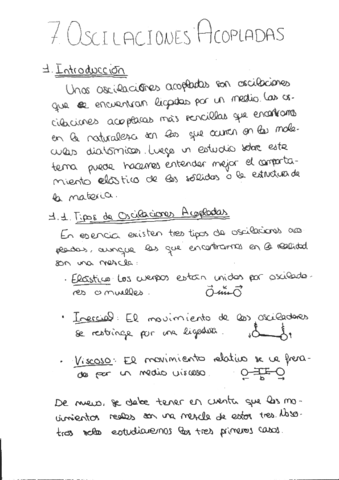 7 OSCILACIONES ACOPLADAS
1. Introducción
Unas oscilaciones acopladas son oscilaciones
que se encuentran ligadas por un medio. Las os-
cilaciones acopladas más sencillas que encontramos
en la naturaleza son las que ocurren en las molé-
culas diatómicas. Luego un estudio sobre este
tema puede hacernos entender mejor el comporta-
miento elástico de los sólidos o la estructura de
la materia.
1.1. Tipos de Oscilaciones Acopladas
En esencia existen tres tipos de oscilaciones aco
pladas, aunque las que encontramos en la realidad
son una mezcla:
· Elástico: Los cuerpos están unidos por oscilado-
res o muelles.
· Inercial: El movimiento de los osciladores
se restringe por una ligadura.
· Viscoso: El movimiento relativo se ve frena-
do por un medio viscoso
De nuevo, se debe tener en cuenta que los mo-
vimientos reales son una mezcla de estos tres. Noso-
tros solo estudiaremos los tres primeros casos.